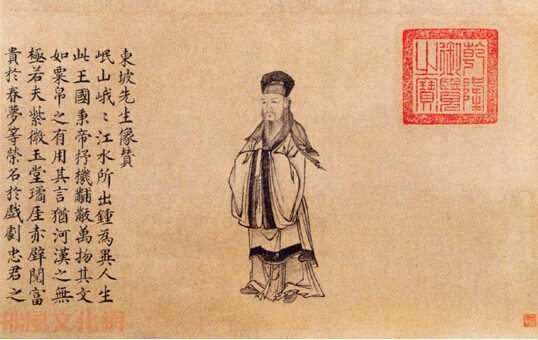 乾隆
御覽
之寶
東坡先生像贊
岷山峨〻江水所出鍾為異人生
此王國秉帝杼機黼黻萬物其文
如粟帛之有用其言猶河漢之無
極若夫紫微玉堂瓊厓赤壁閱富
貴於春夢等榮名於戲劇忠君之
文化網